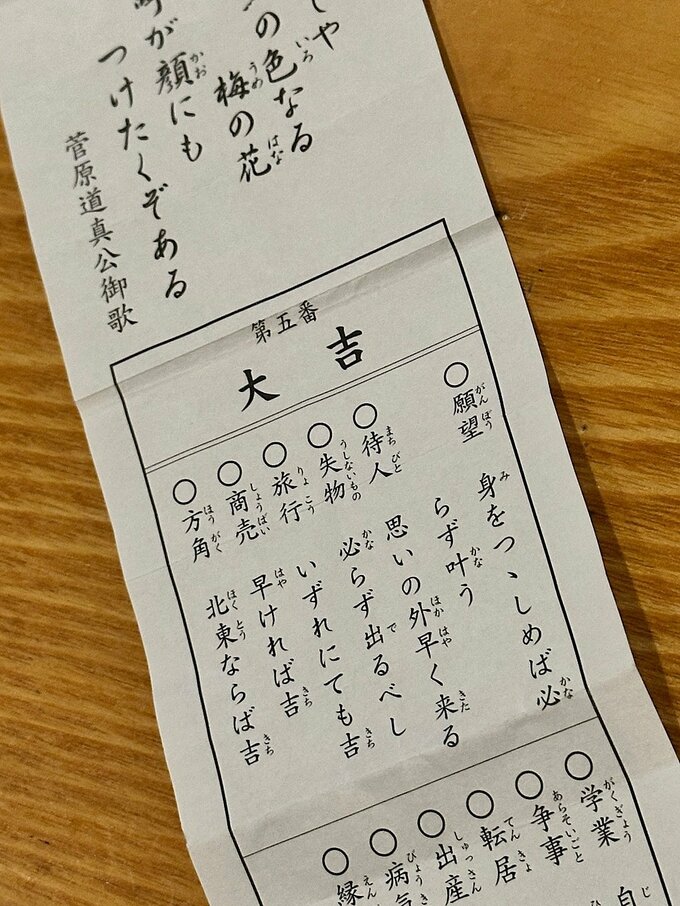 しや
の色なる
梅の花
が顔にも
つけたくぞある
菅原道真公御歌
第五番
大吉
○願望 身をつゝしめば必
らず叶う
○待人 思いの外早く来る
○失物 必らず出るべし
○旅行 いずれにても吉
○商売 早ければ吉
○方角 北東ならば吉
○学業 自
○争事
○転居
○出産
○病気
○縁